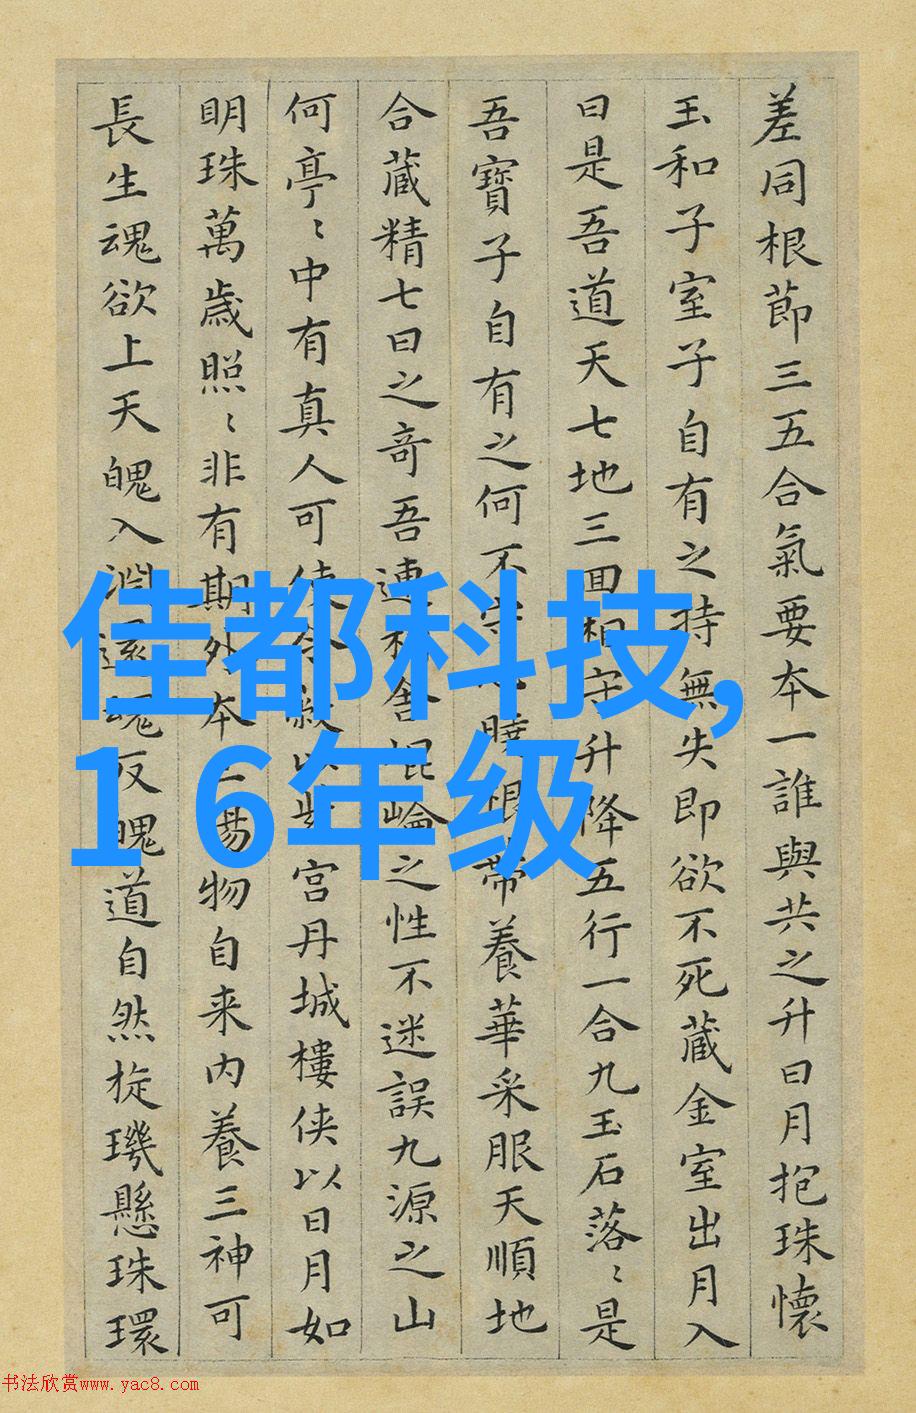 差同根節三五合氣要本一誰與共之升日月抱珠懷
玉和子室子自有之持無失即欲不死藏金室出月入
日是吾道天七地三回相守升降五行一合九玉石落〻是
吾寶子自有之何不守曉根蒂養華采服天順地
合藏精七日之奇吾連相舍崐崘之性不迷誤九源之山
何亭〻中有真人可使令蔽以紫宮丹城樓侠以日月如
明珠萬歲照〻非有期外本三陽物自来内養三神可
長生魂欲上天魄入淵還魂反魄道自然旋璣懸珠環
佳都科技,
1 6年级
书法欣赏www.yac8.com